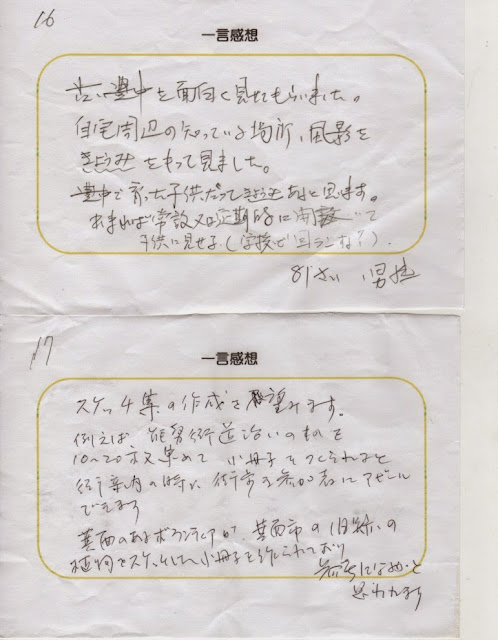 16
一言感想
古い豊中を面白く見せてもらいました。
自宅周辺の知っている場所、風影を
きょうみをもって見ました。
豊中で育った子供だってきょうみあると思います。
あまれば常設又は定期的に開設して
子供に見せる(学校で回らンね?)。
81さい 男性
17
一言感想
スケッチ集の作成を展望みます。
例えば 能勢街道沿いのものを
10~20枚集めて 小冊子をつくられると
街案内の時に 街歩の参加者にアピール
できます
箕面のあるボランティアが、箕面市の旧跡の
植物をスケッチした小冊子を作られており
参考になるかと
思われます